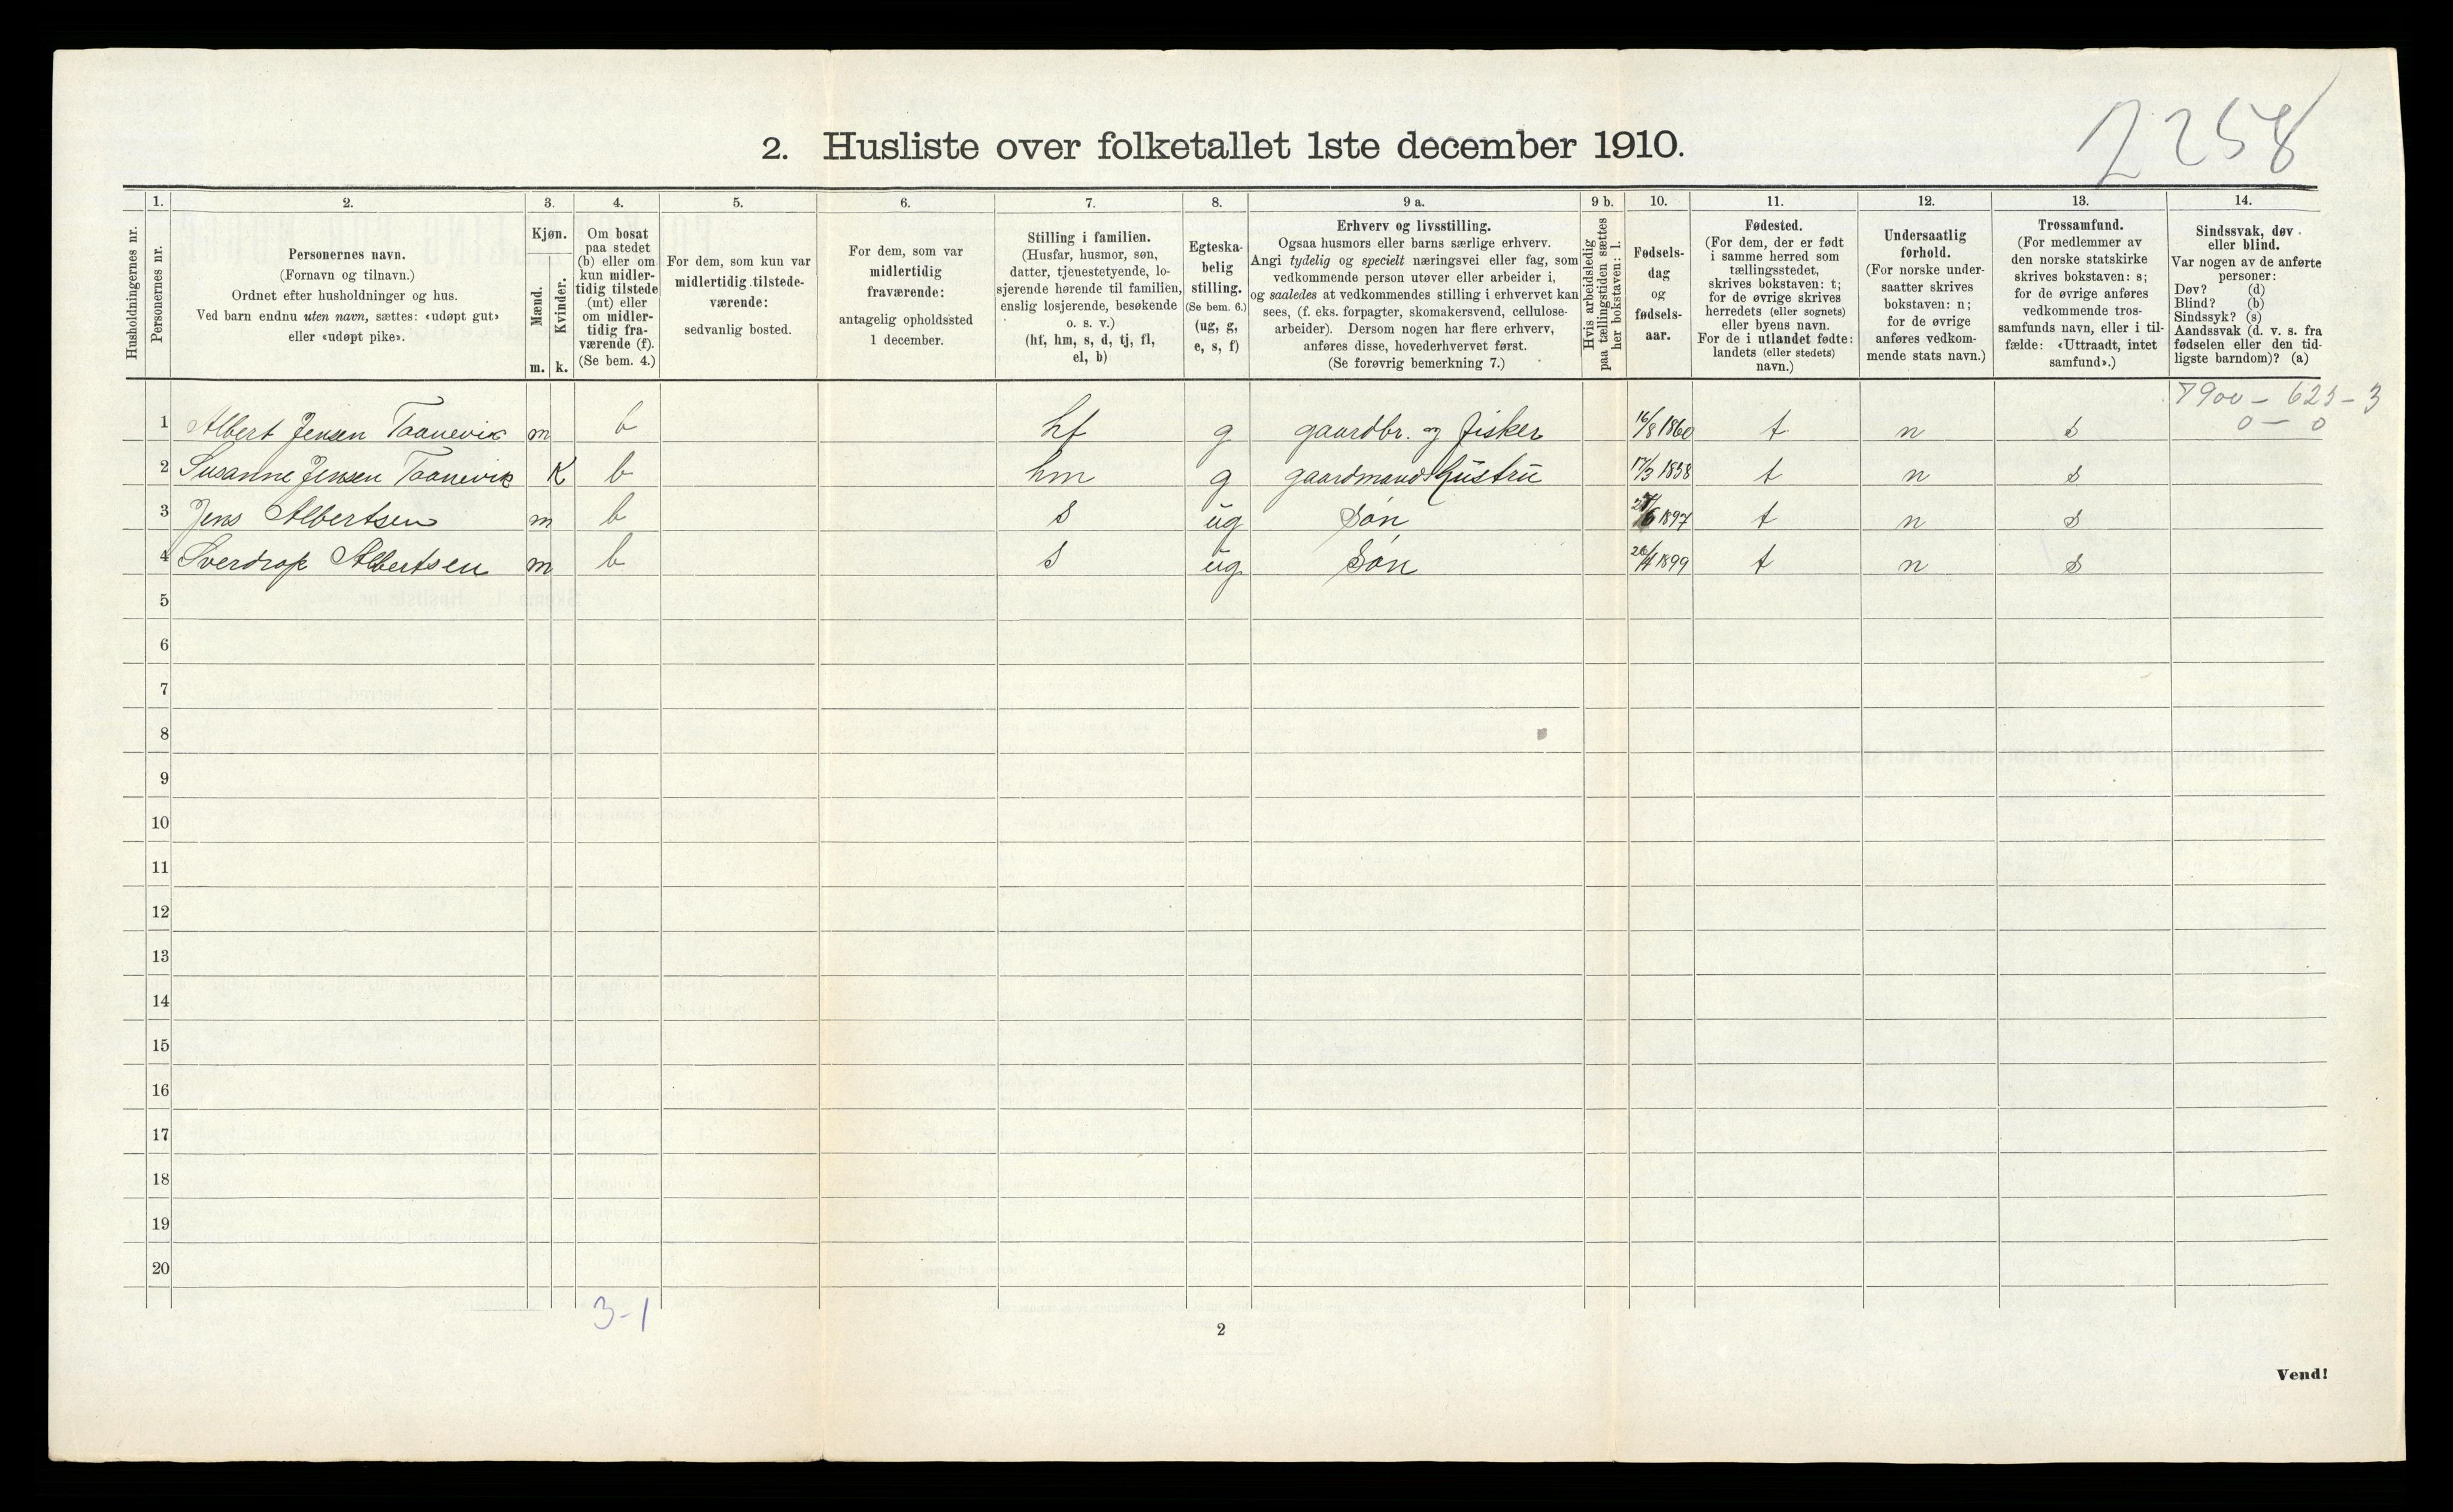 2258
2. Husliste over folketallet 1ste december 1910.
1. 2. 3. 4. 5. 6. 7. 8. 9 a. 9 b. 10. 11. 12. 13. 14.
Husholdningernes nr.
Personernes nr.
Personernes navn.
(Fornavn og tilnavn.)
Ordnet efter husholdninger og hus.
Ved barn endnu uten navn, sættes: «udøpt gut»
eller «udøpt pike».
Kjøn.
Mænd.
Kvinder.
m. k.
Om bosat
paa stedet
(b) eller om
kun midler-
tidig tilstede
(mt) eller
om midler-
tidig fra-
værende (f).
(Se bem. 4.)
For dem, som kun var
midlertidig tilstede-
værende:
sedvanlig bosted.
For dem, som var
midlertidig
fraværende:
antagelig opholdssted
1 december.
Stilling i familien.
(Husfar, husmor, søn,
datter, tjenestetyende, lo-
sjerende hørende til familien,
enslig losjerende, besøkende
o. s. v.)
(hf, hm, s, d, tj, fl,
el, b)
Egteska-
belig
stilling.
(Se bem. 6.)
(ug, g,
e, s, f)
Erhverv og livsstilling.
Ogsaa husmors eller barns særlige erhverv.
Angi tydelig og specielt næringsvei eller fag, som
vedkommende person utøver eller arbeider i,
og saaledes at vedkommendes stilling i erhvervet kan
sees, (f. eks. forpagter, skomakersvend, cellulose-
arbeider). Dersom nogen har flere erhverv,
anføres disse, hovederhvervet først.
(Se forøvrig bemerkning 7.)
Hvis arbeidsledig
paa tællingstiden sættes
her bokstaven: l.
Fødsels-
dag
og
fødsels-
aar.
Fødested.
(For dem, der er født
i samme herred som
tællingsstedet,
skrives bokstaven: t;
for de øvrige skrives
herredets (eller sognets)
eller byens navn.
For de i utlandet fødte:
landets (eller stedets)
navn.)
Undersaatlig
forhold.
(For norske under-
saatter skrives
bokstaven: n;
for de øvrige
anføres vedkom-
mende stats navn.)
Trossamfund.
(For medlemmer av
den norske statskirke
skrives bokstaven: s;
for de øvrige anføres
vedkommende tros-
samfunds navn, eller i til-
fælde: «Uttraadt, intet
samfund».)
Sindssvak, døv
eller blind.
Var nogen av de anførte
personer:
Døv? (d)
Blind? (b)
Sindssyk? (s)
Aandssvak (d. v. s. fra
fødselen eller den tid-
ligste barndom)? (a)
7900 - 625 - 3
0 - 0
1 Albert Jensen Taanevik m b hf g gaardbr. og fisker 16/8 1860 t n s
2 Susanne Jensen Taanevik K b hm g gaardmandshustru 17/3 1858 t n s
3 Jens Albertsen m b s ug Søn 1897 t n s
4 Sverdrop Albertsen m b s ug Søn 1899 t n s
5
6
7
8
9
10
11
12
13
14
15
16
17
18
19
20
3-1
2
Vend!